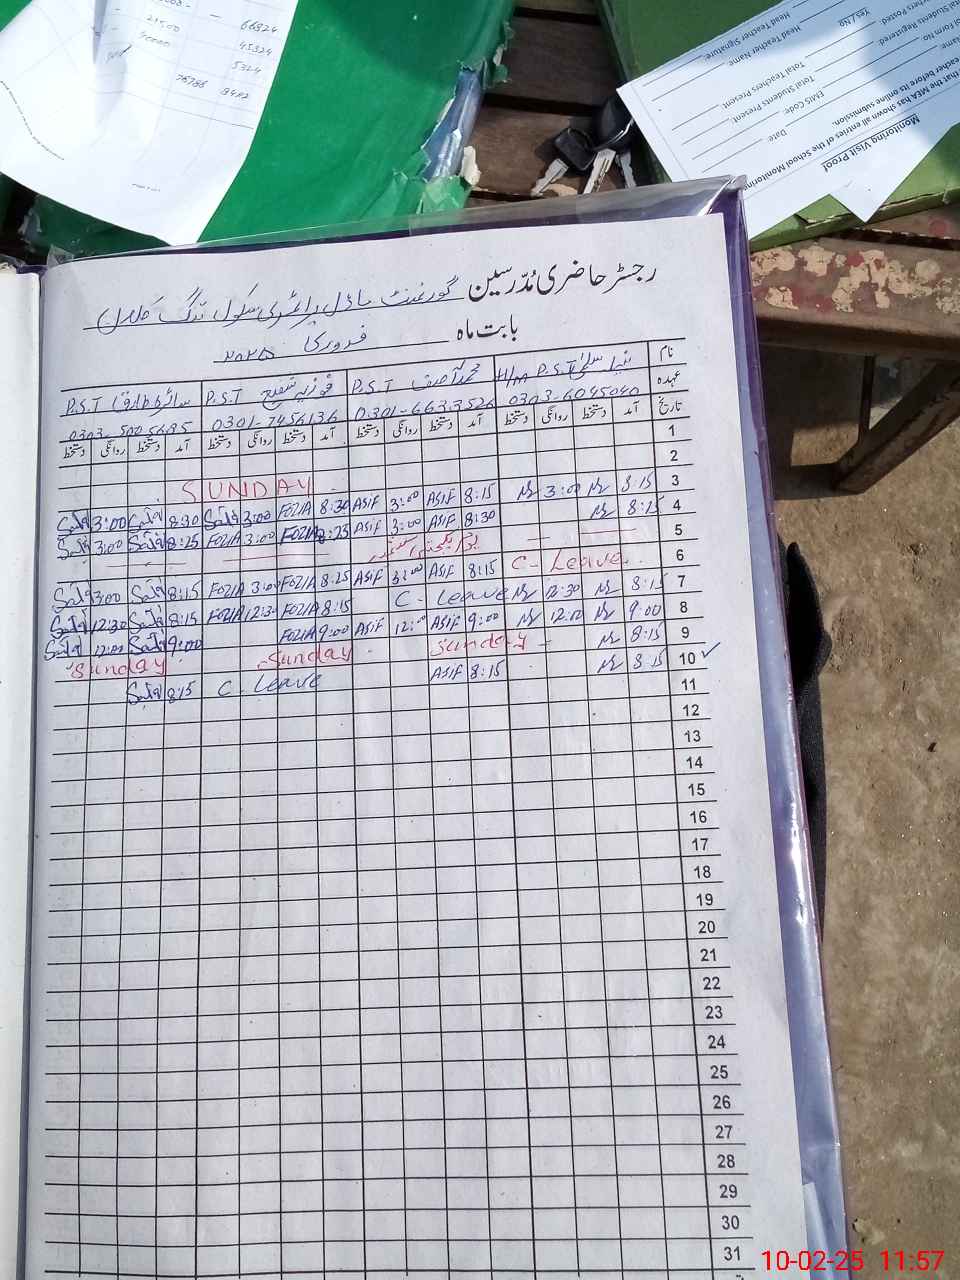 66824
21500 — 45324
40000 5324
78786 8412
Monitoring Visit Proof
that the MEA has shown all entries of the School Monitoring
eacher before its online submission.
Date:
EMIS Code:
Total Students Present:
Total Teachers Present:
Students Registered:
Teachers Posted
Yes / No
Head Teacher Name:
Head Teacher Signature:
رجسٹر حاضری مُدّرسین گورنمنٹ ماڈل پرائمری سکول
بابت ماہ فروری ۲۰۲۵
نام
عہدہ H/m P.S.T محمد آصف P.S.T فوزیہ شفیع P.S.T سائرہ طارق P.S.T
0303-6045040 0301-6633526 0301-7456136 0303-5005685
تاریخ آمد دستخط روانگی دستخط آمد دستخط روانگی دستخط آمد دستخط روانگی دستخط آمد دستخط روانگی دستخط
1
2 SUNDAY
3 8:15 3:00 8:15 ASIF 3:00 ASIF 8:30 FOZIA 3:00 8:30 3:00
4 8:15 8:30 ASIF 3:00 ASIF 8:25 FOZIA 3:00 FOZIA 8:25 3:00
5 یوم یکجہتی کشمیر
6 C - Leave. 8:15 ASIF 3:00 ASIF 8:25 FOZIA 3:00 FOZIA 8:15 3:00
7 8:15 12:30 C - Leave 8:15 FOZIA 12:30 FOZIA 8:15 12:30
8 9:00 12:00 9:00 ASIF 12:00 ASIF 9:00 FOZIA 9:00 12:00
9 8:15 Sunday Sunday Sunday
10 ✓ 8:15 8:15 ASIF C - Leave 8:15
11
12
13
14
15
16
17
18
19
20
21
22
23
24
25
26
27
28
29
30
31
10-02-25 11:57